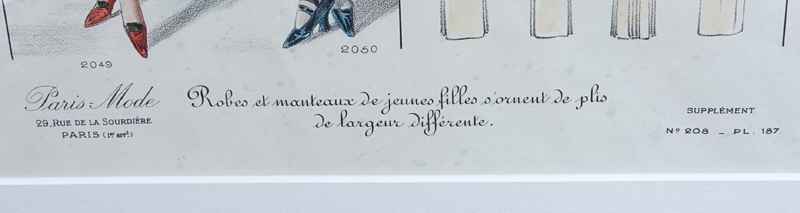 2049
2050
Paris-Mode
29, RUE DE LA SOURDIÈRE
PARIS (1er arrt)
Robes et manteaux de jeunes filles s'ornent de plis
de largeur différente.
SUPPLÉMENT
No 208 - PL. 187